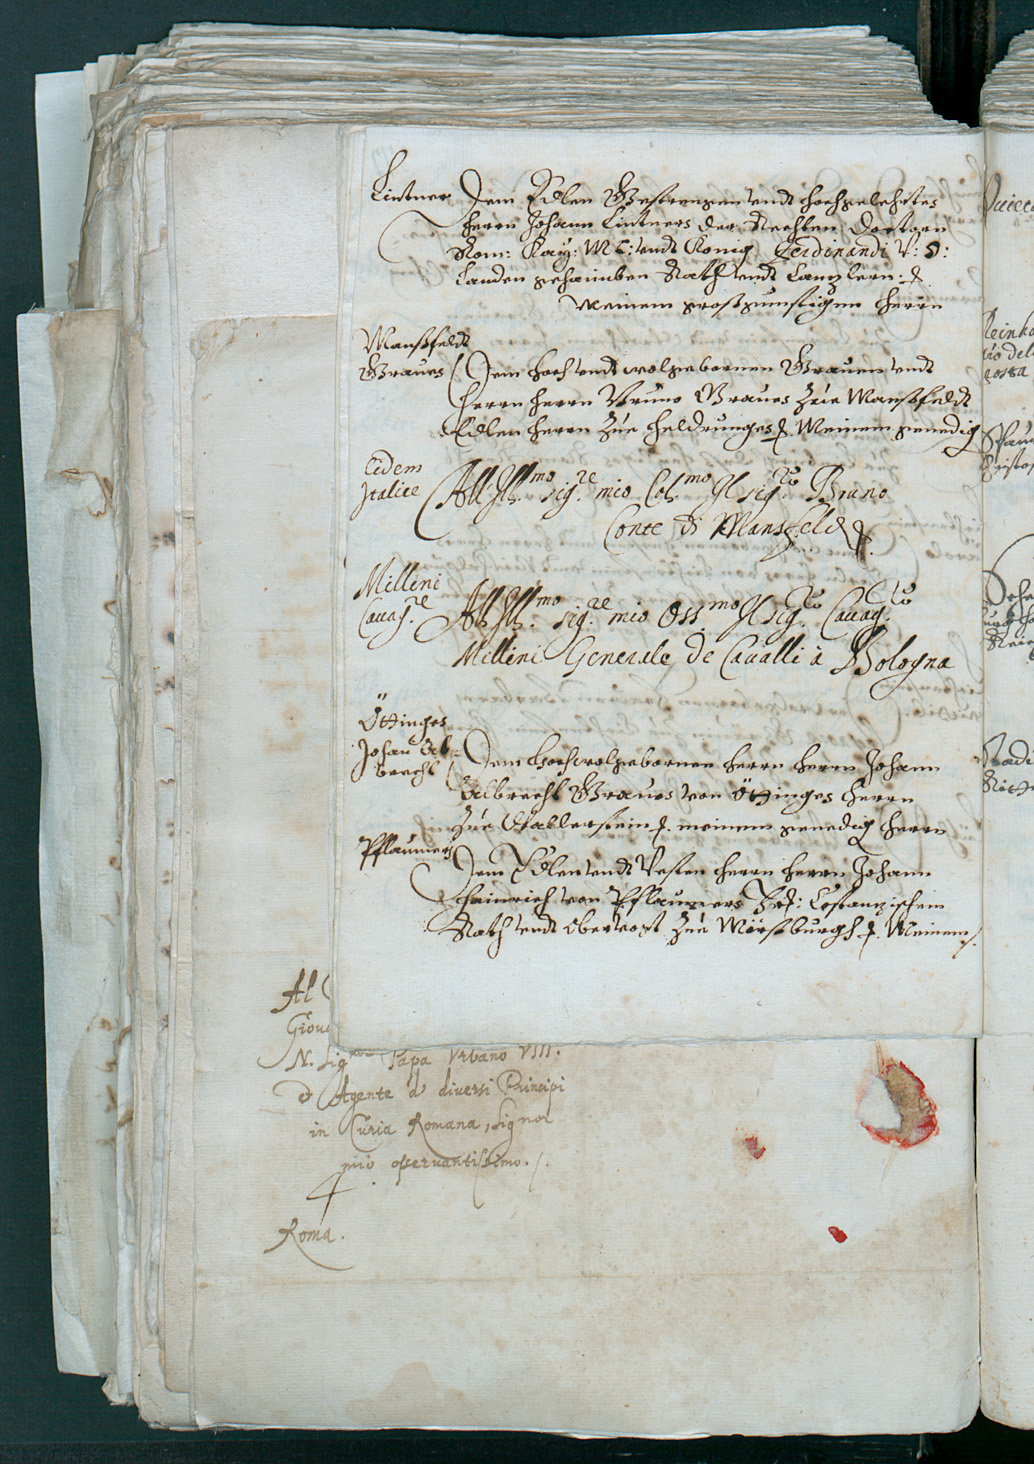 Lintner Dem Edlen Gestrengen undt hochgelehrtes
herrn Johann Lintners der Rechten Doctorn
Röm: Kay: Mt: undt König Ferdinandi V: Ö:
Landen gehaimben Rath undt Canzlern:
Meinem großgünstigen herrn
Manßfeldt
Graves Dem hoch undt wolgebornen Graven undt
herrn herrn Bruno Graves Züe Manßfeldt
Edlen herrn Züe heldrunges. Meinem genedig
Eidem
Italice All Ill.mo sig.re mio Col.mo Il sig.r Bruno
Conte di Mansfeld
Millini
Cavag.re All Ill.mo sig.re mio Oss.mo Il sig. Cavag.
Millini Generale de Cavalli à Bologna
Öttinges
Johan Al-
brecht Dem hochwolgebornen herrn herrn Johann
Albrecht Graves von Öttinges herrn
Züe Wallerstein. meinem genedig herrn
Pflaumers Dem Edlen undt Vesten herrn herrn Johann
hainrich von Pflaumers Costanzischem
Rath undt Obervogt Züe Mörspurgh. Meinem
Al
Giov
N. Sig Papa Urbano VIII.
et Agente di diversi Principi
in Curia Romana, Signor
mio osservantissimo.
Roma.